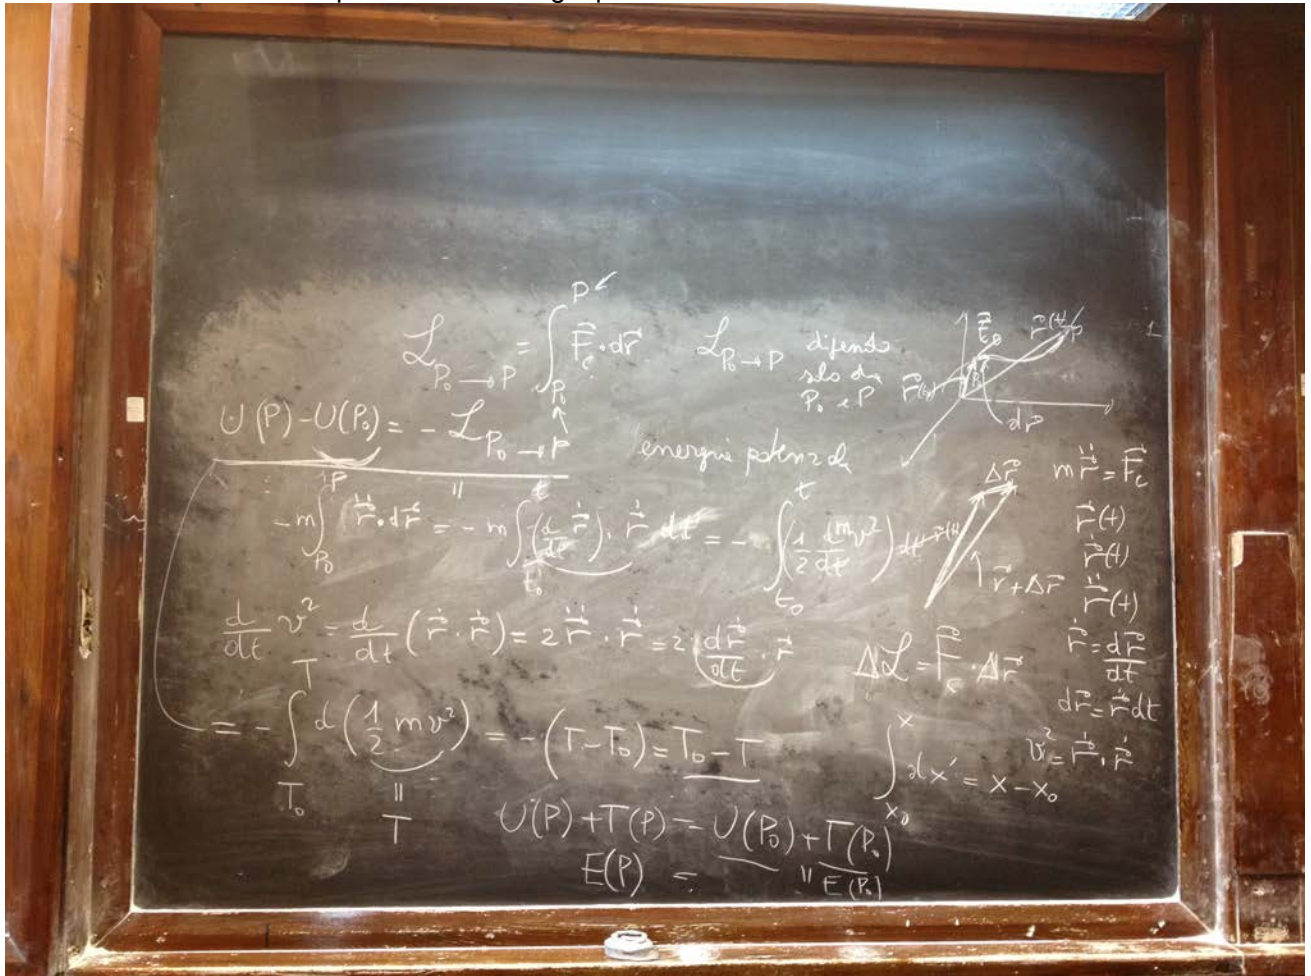 ℒ_{P₀→P} = ∫_{P₀}^{P} F⃗_c · dr⃗
ℒ_{P₀→P} dipende
solo da
P₀ e P
U(P) - U(P₀) = - ℒ_{P₀→P}
energia potenziale
dr⃗
-m ∫_{P₀}^{P} r⃗̈ · dr⃗ = - m ∫_{t₀}^{t} (d/dt r⃗̇) · r⃗̇ dt = - ∫_{t₀}^{t} (1/2 d/dt mv²) dt
d/dt v² = d/dt (r⃗̇ · r⃗̇) = 2 r⃗̈ · r⃗̇ = 2 dr⃗̇/dt · r⃗̇
= - ∫_{T₀}^{T} d(1/2 mv²) = - (T - T₀) = T₀ - T
"
T
U(P) + T(P) = U(P₀) + T(P₀)
E(P) = " E(P₀)
Δr⃗
r⃗ + Δr⃗
Δℒ = F⃗_c · Δr⃗
∫_{x₀}^{x} dx' = x - x₀
m r⃗̈ = F⃗_c
r⃗(t)
r⃗̇(t)
r⃗̈(t)
r⃗̇ = dr⃗/dt
dr⃗ = r⃗̇ dt
v² = r⃗̇ · r⃗̇